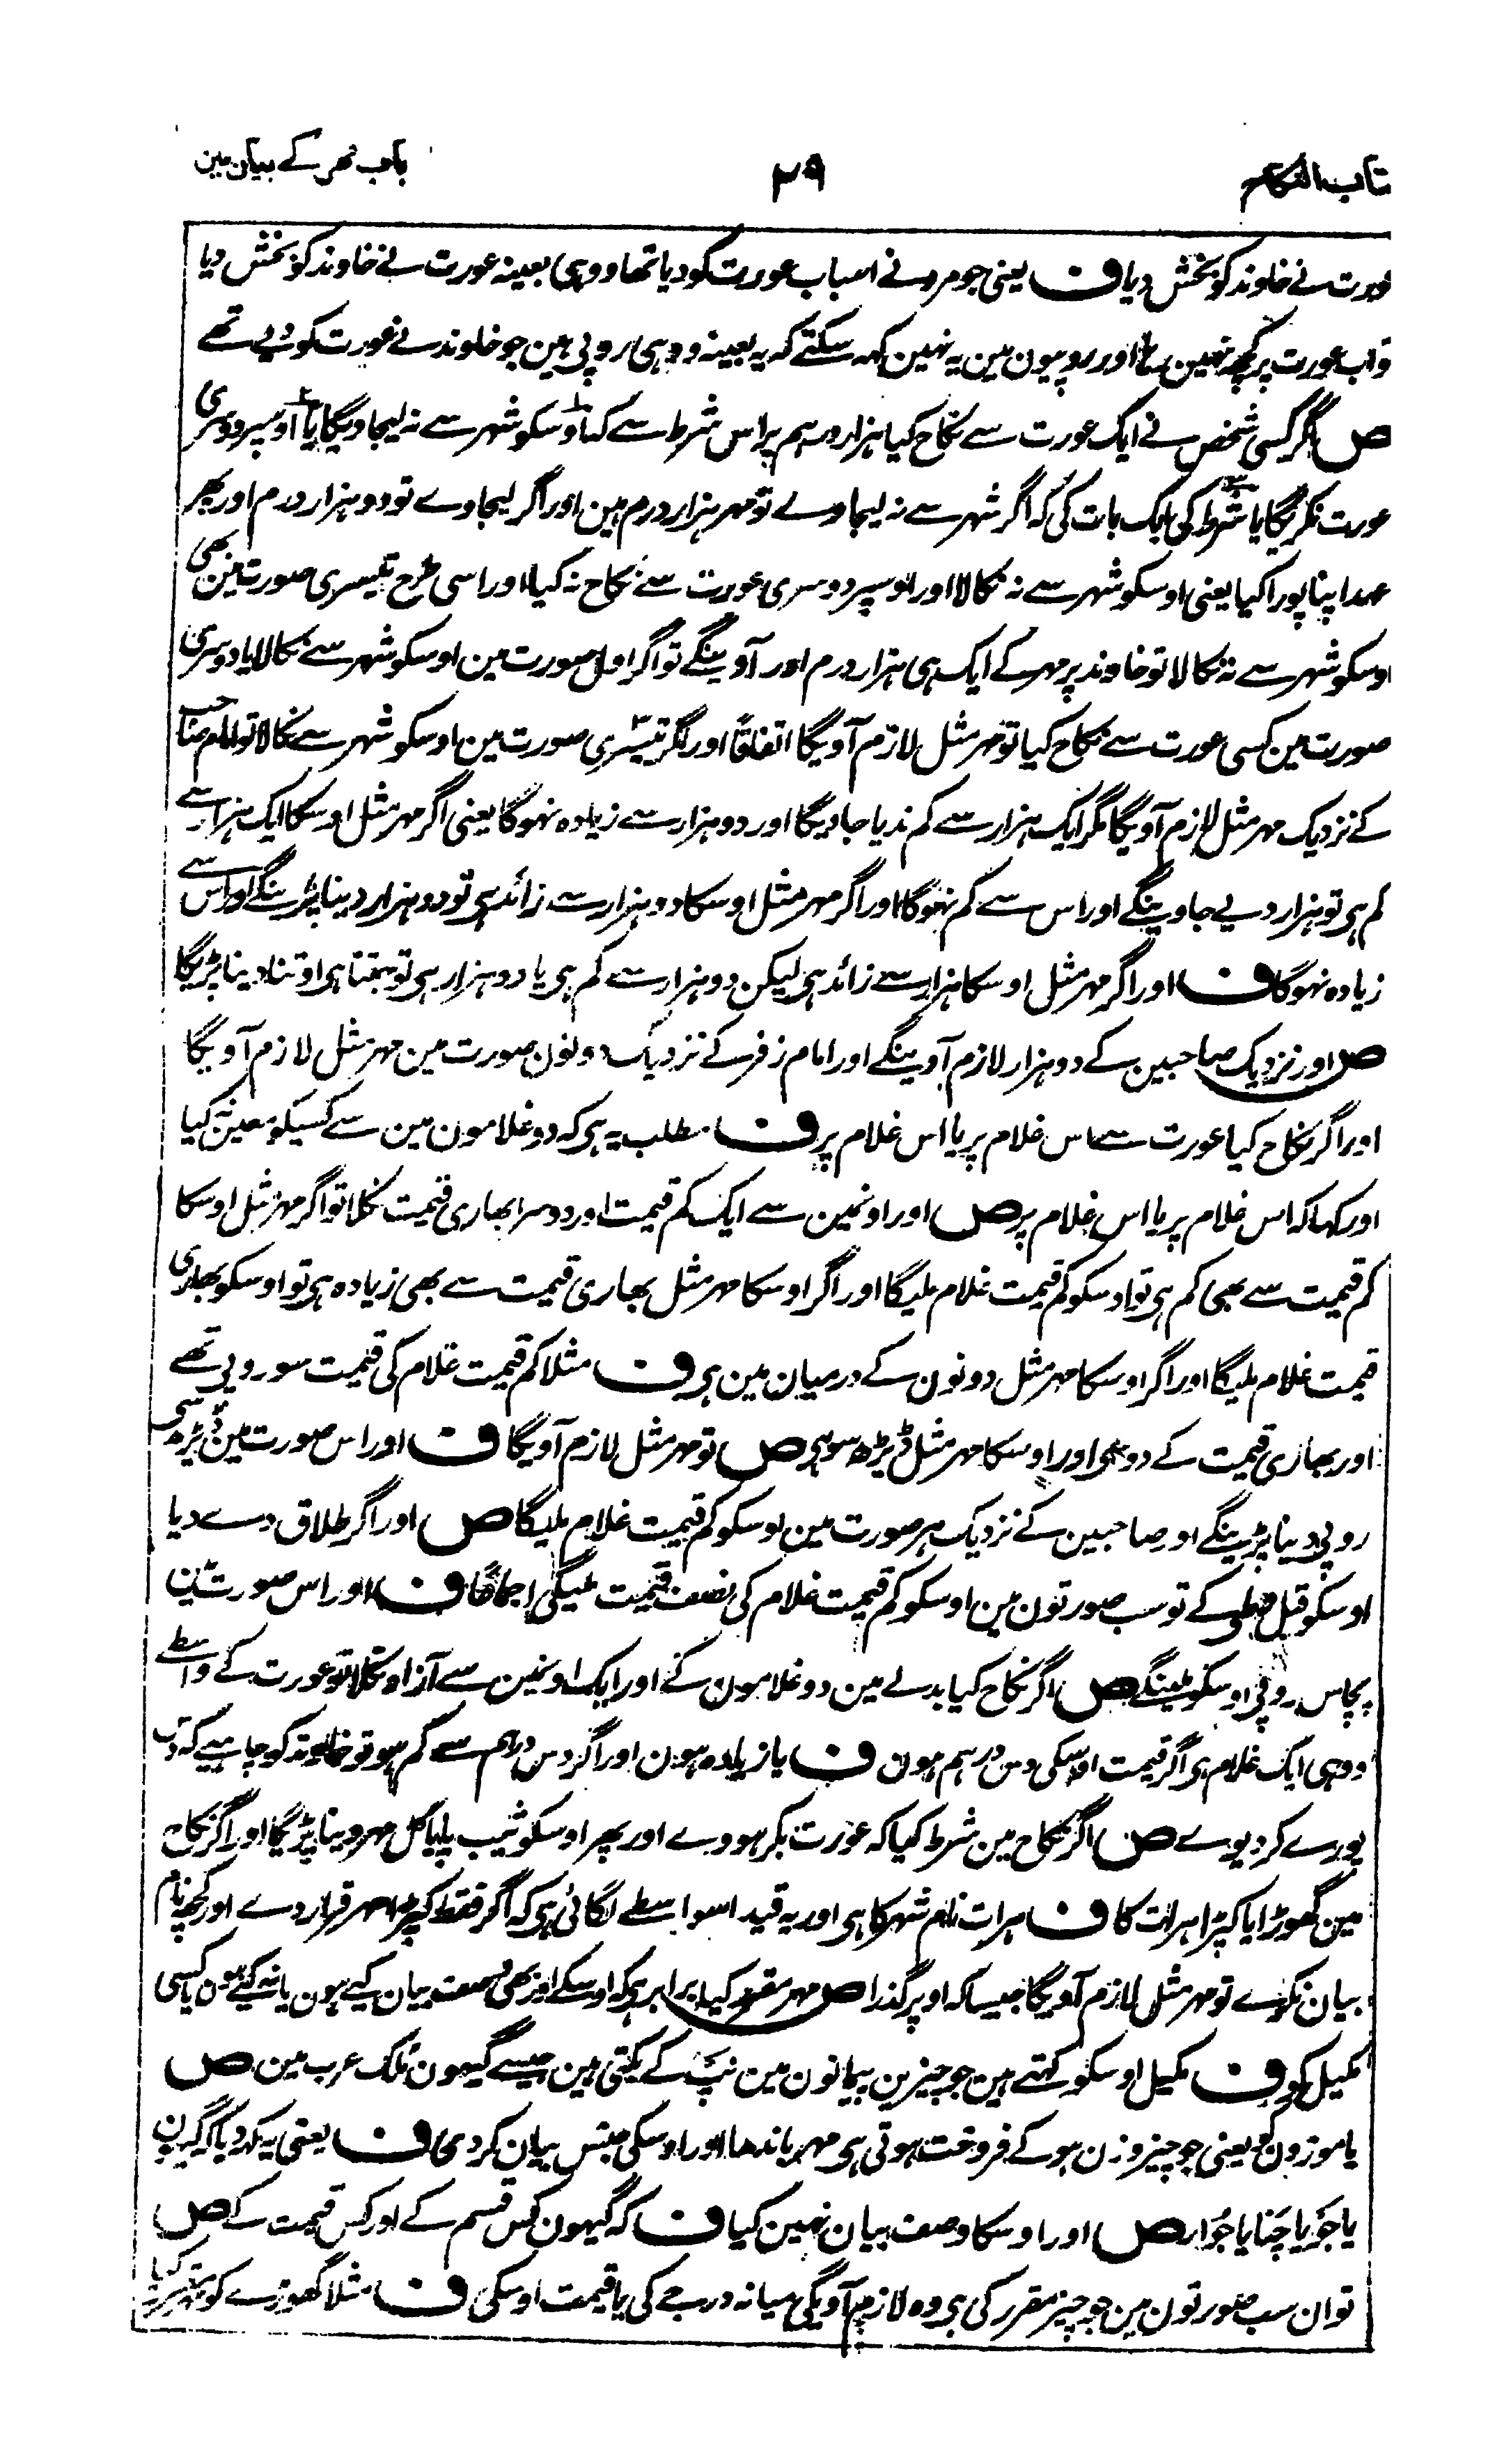 تاب النکاح
۳۹
باب مہر کے بیان مین
عورت نے خاوند کو بخش دیا ف یعنی جو مرد نے اسباب عورت کو دیا تھا وہی بعینہ عورت نے خاوند کو بخش دیا
واب عورت پر کچھ نہین رہا اور روپیون مین یہ نہین کہہ سکتے کہ یہ بعینہ وہ ہی روپی ہین جو خاوند نے عورت کو دیے تھے
ص اگر کسی شخص نے ایک عورت سے نکاح کیا ہزار درہم پر اس شرط سے کہ اوسکو شہر سے نہ لیجاویگا یا اوسپر دوسری
عورت نکریگا یا شرط کی ایک بات کی کہ اگر شہر سے نہ لیجاوے تو مہر ہزار درم ہین اور اگر لیجاوے تو دو ہزار درم اور پھر
عہد اپنا پورا کیا یعنی اوسکو شہر سے نہ نکالا اور اوسپر دوسری عورت سے نکاح نہ کیا اور اسی طرح تیسری صورت مین بھی
اوسکو شہر سے نہ نکالا تو خاوند پر مہر کے ایک ہی ہزار درم اور آوینگے تو اگر اول صورت مین اوسکو شہر سے نکالا یا دوسری
صورت مین کسی عورت سے نکاح کیا تو مہر مثل لازم آویگا اتفاقاً اور اگر تیسری صورت مین اوسکو شہر سے نکالا تو امام صاحب
کے نزدیک مہر مثل لازم آویگا مگر ایک ہزار سے کم ندیا جاویگا اور دو ہزار سے زیادہ نہوگا یعنی اگر مہر مثل اوسکا ایک ہزار سے
کم ہی تو ہزار دیے جاوینگے اور اس سے کم نہوگا اور اگر مہر مثل اوسکا دو ہزار سے زائد ہی تو دو ہزار دینا پڑینگے اور اس سے
زیادہ نہوگا ف اور اگر مہر مثل اوسکا ہزار سے زائد ہی لیکن دو ہزار سے کم ہی یا دو ہزار ہی تو جتنا ہی اوتنا دینا پڑیگا
ص اور نزدیک صاحبین کے دو ہزار لازم آوینگے اور امام زفر کے نزدیک دونون صورت مین مہر مثل لازم آویگا
اور اگر نکاح کیا عورت سے اس غلام پر یا اس غلام پر ف مطلب یہ ہی کہ دو غلامون مین سے کسیکو معین نکیا
اور کہا کہ اس غلام پر یا اس غلام پر ص اور اونمین سے ایک کم قیمت اور دوسرا بھاری قیمت نکلا تو اگر مہر مثل اوسکا
کم قیمت سے بھی کم ہی تو اوسکو کم قیمت غلام ملیگا اور اگر اوسکا مہر مثل بھاری قیمت سے بھی زیادہ ہی تو اوسکو بھاری
قیمت غلام ملیگا اور اگر اوسکا مہر مثل دونون کے درمیان مین ہی ف مثلا کم قیمت غلام کی قیمت سو روپی تھے
اور بھاری قیمت کے دو سی اور اوسکا مہر مثل ڈیڑھ سو ہی ص تو مہر مثل لازم آویگا ف اور اس صورت مین ڈیڑھ سی
روپی دینا پڑینگے اور صاحبین کے نزدیک ہر صورت مین اوسکو کم قیمت غلام ملیگا ص اور اگر طلاق دے دیا
اوسکو قبل وطی کے تو سب صورتون مین اوسکو کم قیمت غلام کی نصف قیمت ملیگی اجماعًا ف اور اس صورت مین
پچاس روپی اوسکو ملینگے ص اگر نکاح کیا بدلے مین دو غلامون کے اور ایک اونمین سے آزاد نکلا تو عورت کے واسطے
وہی ایک غلام ہی اگر قیمت اوسکی دس درہم ہون ف یا زیادہ ہون اور اگر دس درہم سے کم ہو تو خاوند کو چاہیے کہ دس
پورے کر دیوے ص اگر نکاح مین شرط کیا کہ عورت بکر ہووے اور پھر اوسکو ثیب پایا کل مہر دینا پڑیگا اور اگر نکاح
مین گھوڑا یا کپڑا ہرات کا ف ہرات نام شہر کا ہی اور یہ قید اسواسطے لگائی ہی کہ اگر فقط کپڑا مہر قرار دے اور کچھ نام
بیان نکرے تو مہر مثل لازم آویگا جیسا کہ اوپر گذرا ص مہر مقرر کیا برابر ہی کہ اوسکے اور بھی وصف بیان کیے ہون یا نہ کیے ہون یا کسی
مکیل کو ف مکیل اوسکو کہتے ہین جو چیزین پیمانون مین نپ کے بکتی ہین جیسے گیہون ملک عرب مین ص
یا موزون کو یعنی جو چیز وزن ہو کے فروخت ہوتی ہی مہر باندھا اور اوسکی جنس بیان کر دی ف یعنی یہ کہدیا کہ گیہون
یا جو یا چنا یا جوار ص اور اوسکا وصف بیان نہین کیا ف کہ گیہون کس قسم کے اور کس قیمت کے ص
تو ان سب صورتون مین جو چیز مقرر کی ہی وہ لازم آویگی میانہ درجے کی یا قیمت اوسکی ف مثلا گھوڑے کو مہر کیا